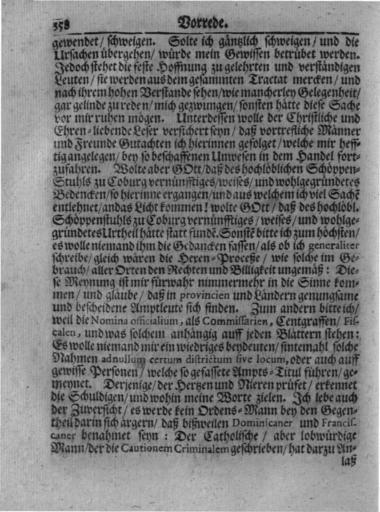 358 Vorrede.
gewendet / schweigen. Solte ich gäntzlich schweigen / und die
Ursachen übergehen / würde mein Gewissen betrübet werden.
Jedoch stehet die feste Hoffnung zu gelehrten und verständigen
Leuten / sie werden aus dem gesammten Tractat mercken / und
nach ihrem hohen Verstande sehen / wie mancherley Gelegenheit /
gar gelinde zu reden / mich gezwungen / sonsten hätte diese Sache
vor mir ruhen mögen. Unterdessen wolle der Christliche und
Ehren-liebende Leser versichert seyn / daß vortrefliche Männer
und Freunde Gutachten ich hierinnen gefolget / welche mir heff-
tig angelegen / bey so beschaffenen Unwesen in dem Handel fort-
zufahren. Wolte aber GOtt / daß des hochlöblichen Schöppen-
Stuhls zu Coburg vernünfftiges / weises / und wohlgegründetes
Bedencken / so hierinne ergangen / und aus welchem ich viel Sache
entlehnet / an das Licht kommen! wolte GOtt / daß des hochlöbl.
Schöppenstuhls zu Coburg vernünfftiges / weises / und wohlge-
gründetes Urtheil hätte statt fundē. Sonstē bitte ich zum höchsten /
es wolle niemand ihm die Gedancken fassen / als ob ich generaliter
schreibe / gleich wären die Hexen-Processe / wie solche im Ge-
brauch / aller Orten den Rechten und Billigkeit ungemäß: Die-
se Meynung ist mir fürwahr nimmermehr in die Sinne kom-
men / und gläube / daß in provincien und Ländern genungsame
und bescheidene Amptleute sich finden. Zum andern bitte ich /
weil die Nomina officialium, als Commissarien, Centgraffen / Fis-
calen, und was solchem anhängig auff jeden Blättern stehen:
Es wolle niemand mir ein wiedriges beydeuten / sintemahl solche
Nahmen adnullum certum districtum sive locum, oder auch auff
gewisse Personen / welche so gefassete Ampts-Titul führen / ge-
meynet. Derjenige / der Hertzen und Nieren prüfet / erkennet
die Schuldigen / und wohin meine Worte zielen. Ich lebe auch
der Zuversicht / es werde kein Ordens-Mann bey den Gegen-
theil darin sich ärgern / daß bißweilen Dominicaner und Francis-
caner benahmet seyn: Der Catholische / aber lobwürdige
Mann / der die Cautionem Criminalem geschrieben / hat darzu An-
laß